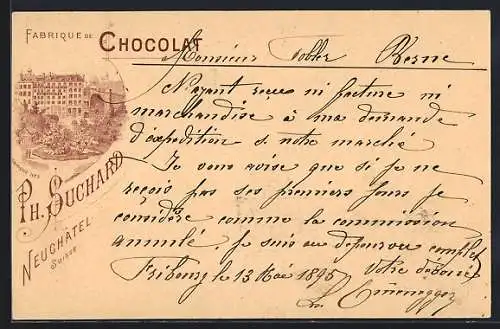 FABRIQUE DE CHOCOLAT
PH. SUCHARD
NEUCHÂTEL
SUISSE
Monsieur Tobler Berne
N'ayant reçu ni facture ni
marchandise à ma demande
d'expédition s. notre marché
Je vous avise que si je ne
reçois pas ses premiers jours je
considère comme la commission
annulé. Je suis au dépourvu complet
Fribourg le 13 Mai 1895 Votre dévoué